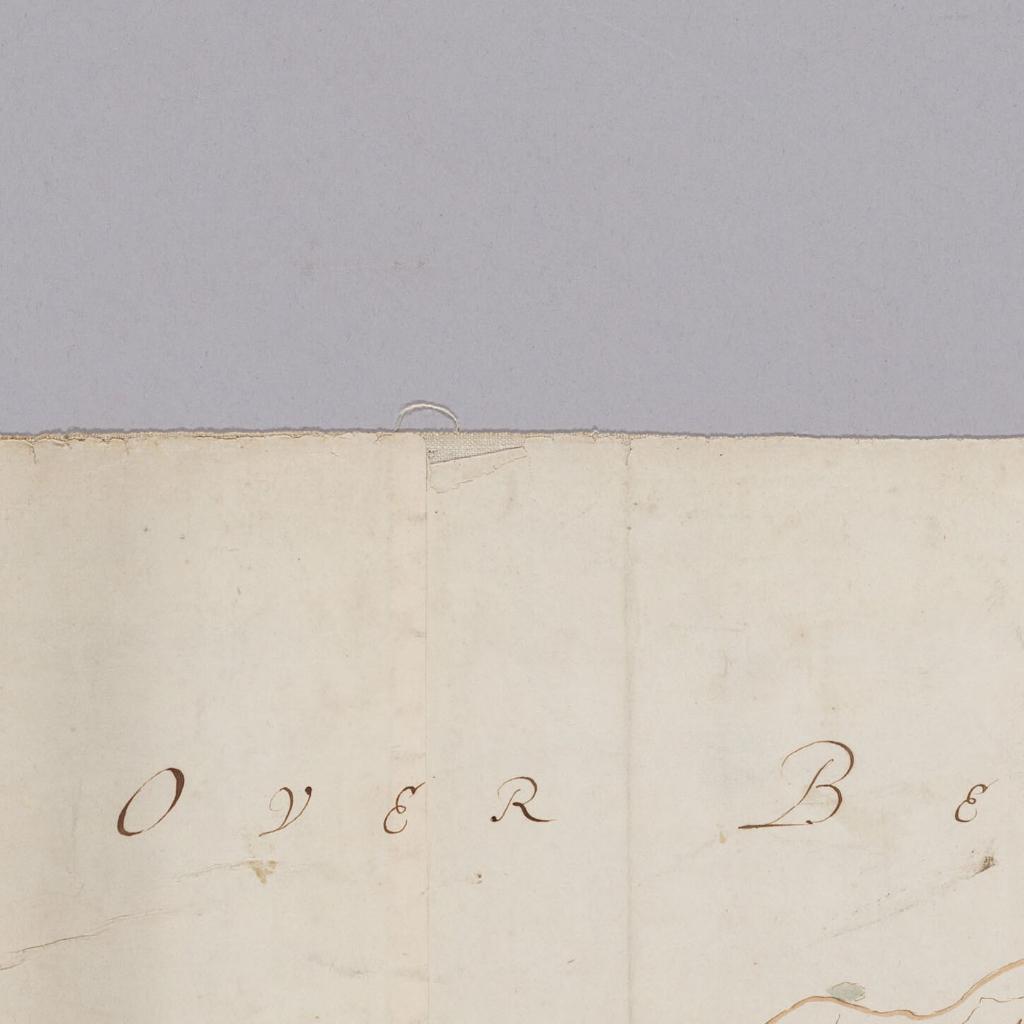 OVER BE